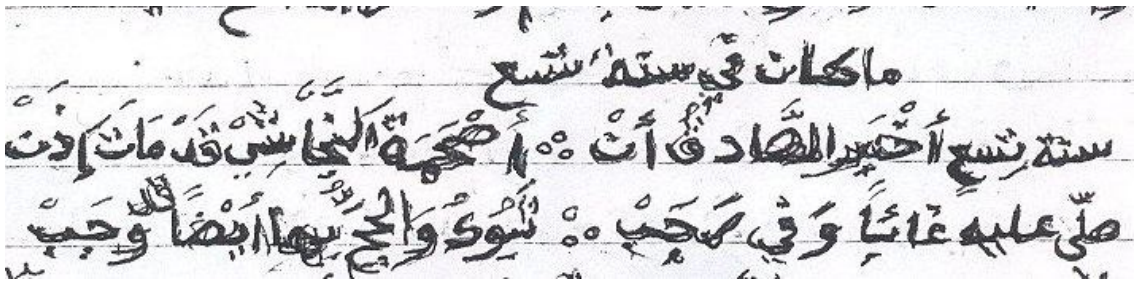 ما كان في سنة تسع
سنة تسع أخبر الصادق أن ∴ أصحمة النجاشي قد مات إذن
صلى عليه غائبا وفي رجب ∴ تبوك والحج بها أيضا وجب